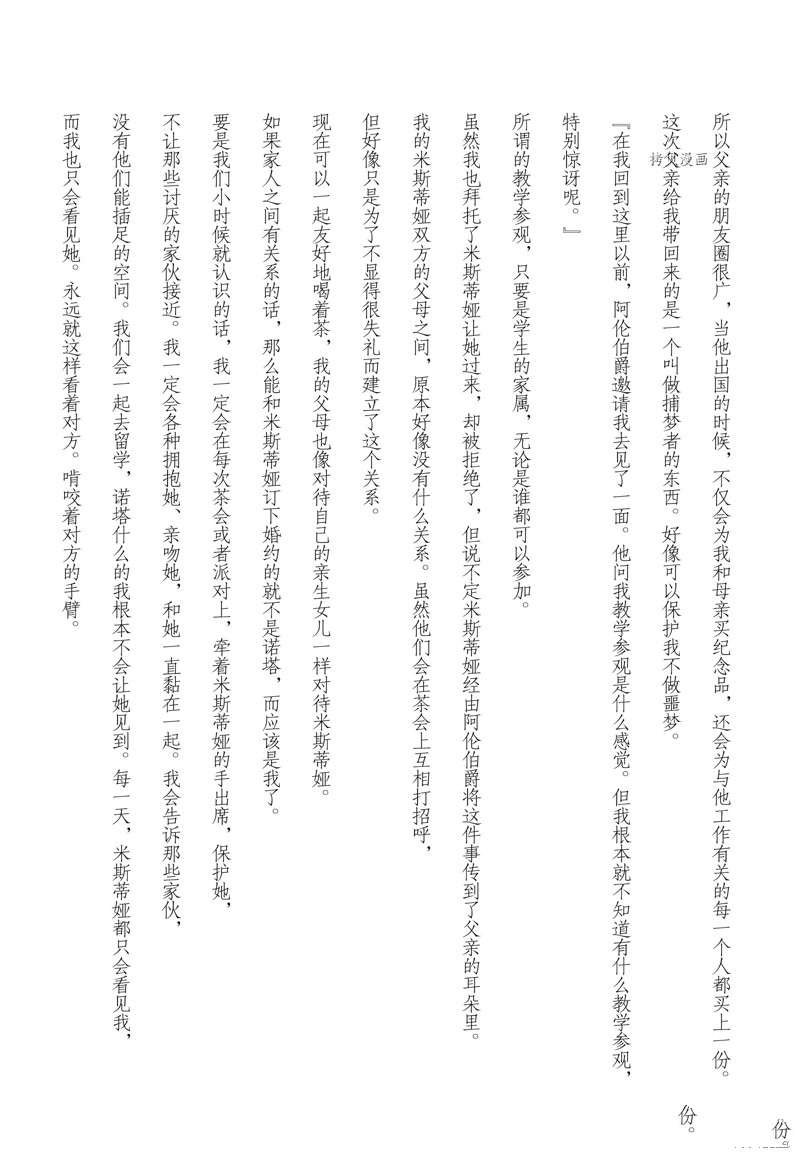 所以父亲的朋友圈很广，当他出国的时候，不仅会为我和母亲买纪念品，还会为与他工作有关的每一个人都买上一份。
这次父亲给我带回来的是一个叫做捕梦者的东西。好像可以保护我不做噩梦。
拷贝漫画
『在我回到这里以前，阿伦伯爵邀请我去见了一面。他问我教学参观是什么感觉。但我根本就不知道有什么教学参观，
特别惊讶呢。』
所谓的教学参观，只要是学生的家属，无论是谁都可以参加。
虽然我也拜托了米斯蒂娅让她过来，却被拒绝了，但说不定米斯蒂娅经由阿伦伯爵将这件事传到了父亲的耳朵里。
我的米斯蒂娅双方的父母之间，原本好像没有什么关系。虽然他们会在茶会上互相打招呼，
但好像只是为了不显得很失礼而建立了这个关系。
现在可以一起友好地喝着茶，我的父母也像对待自己的亲生女儿一样对待米斯蒂娅。
如果家人之间有关系的话，那么能和米斯蒂娅订下婚约的就不是诺塔，而应该是我了。
要是我们小时候就认识的话，我一定会在每次茶会或者派对上，牵着米斯蒂娅的手出席，保护她，
不让那些讨厌的家伙接近。我一定会各种拥抱她、亲吻她，和她一直黏在一起。我会告诉那些家伙，
没有他们能插足的空间。我们会一起去留学，诺塔什么的我根本不会让她见到。每一天，米斯蒂娅都只会看见我，
而我也只会看见她。永远就这样看着对方。啃咬着对方的手臂。
份。
份。